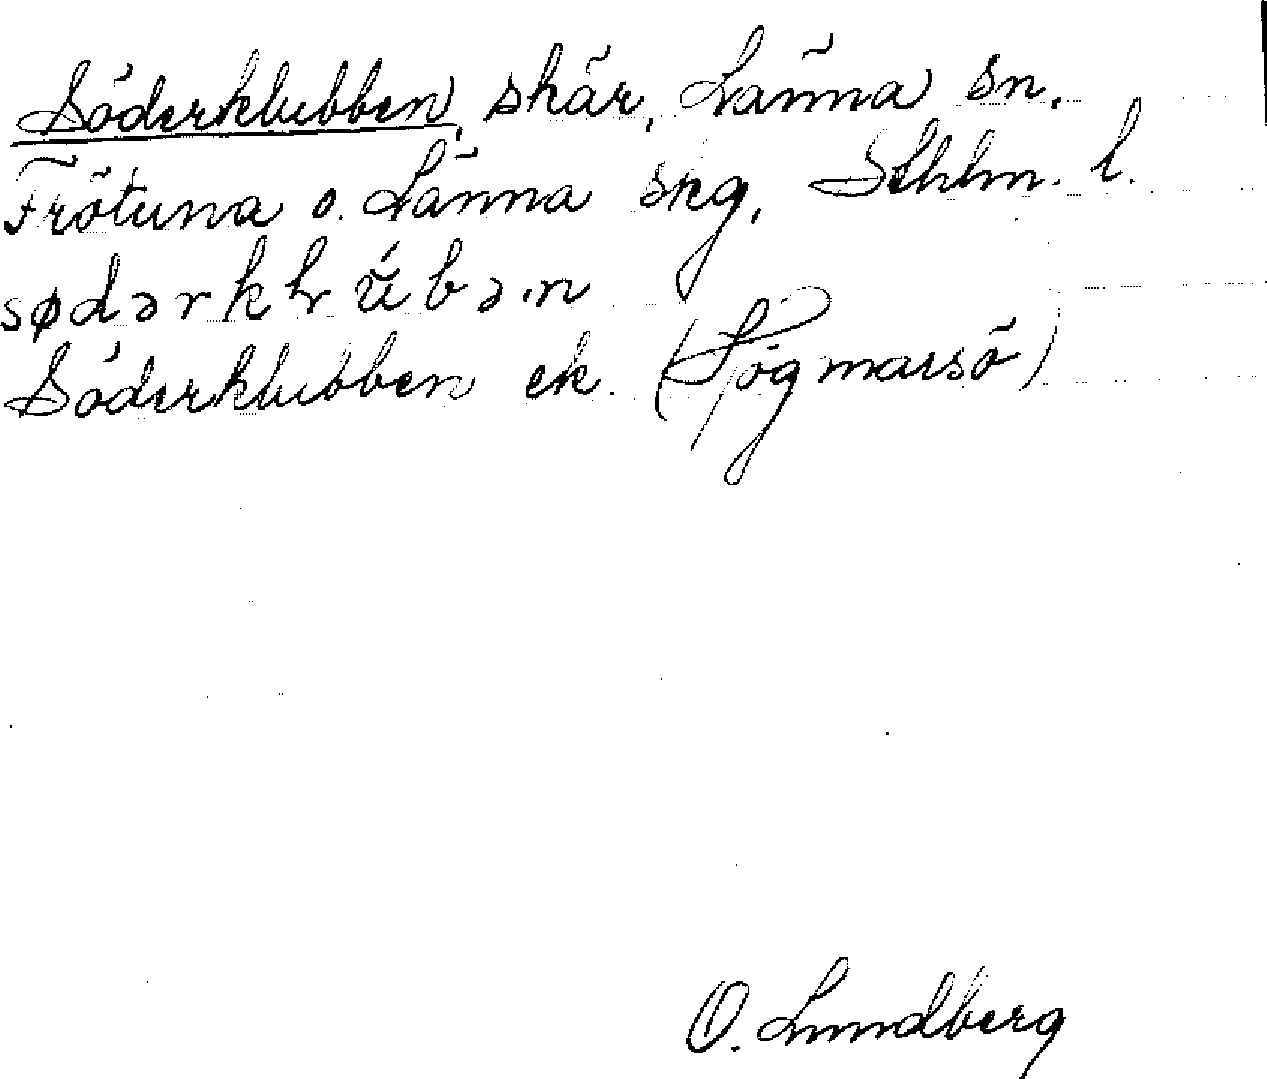 Söderklubben, skär, Länna sn.
Frötuna o. Länna skg, Sthlm. l.
Söderklubben ek. (Sjögmarsö)
O. Lundberg